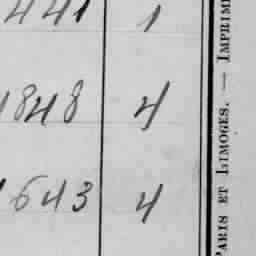 441 1
1848 4
1643 4
PARIS ET LIMOGES. — IMPRIME